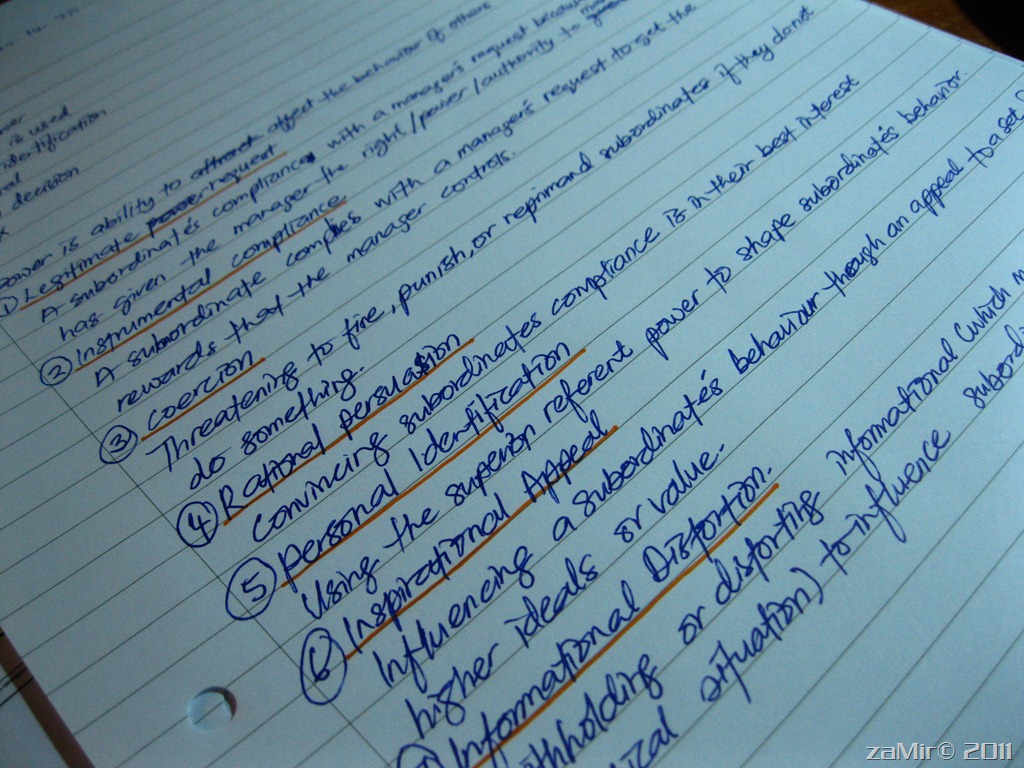 is used
identification
decision
power is ability to affect the behavior of others
① Legitimate power request
A subordinate's compliance with a manager's request because
has given the manager the right/power/authority to
② Instrumental compliance
A subordinate complies with a manager's request to get the
rewards that the manager controls.
③ coercion
Threatening to fire, punish, or reprimand subordinates if they do not
do something.
④ Rational persuasion
convincing subordinates compliance is in their best interest
⑤ personal Identification
Using the superior referent power to shape subordinate's behavior.
⑥ Inspirational Appeal
Influencing a subordinate's behaviour through an appeal to a set
higher ideals or value.
Informational Distortion.
withholding or distorting informational (which
situation) to influence
zaMir© 2011